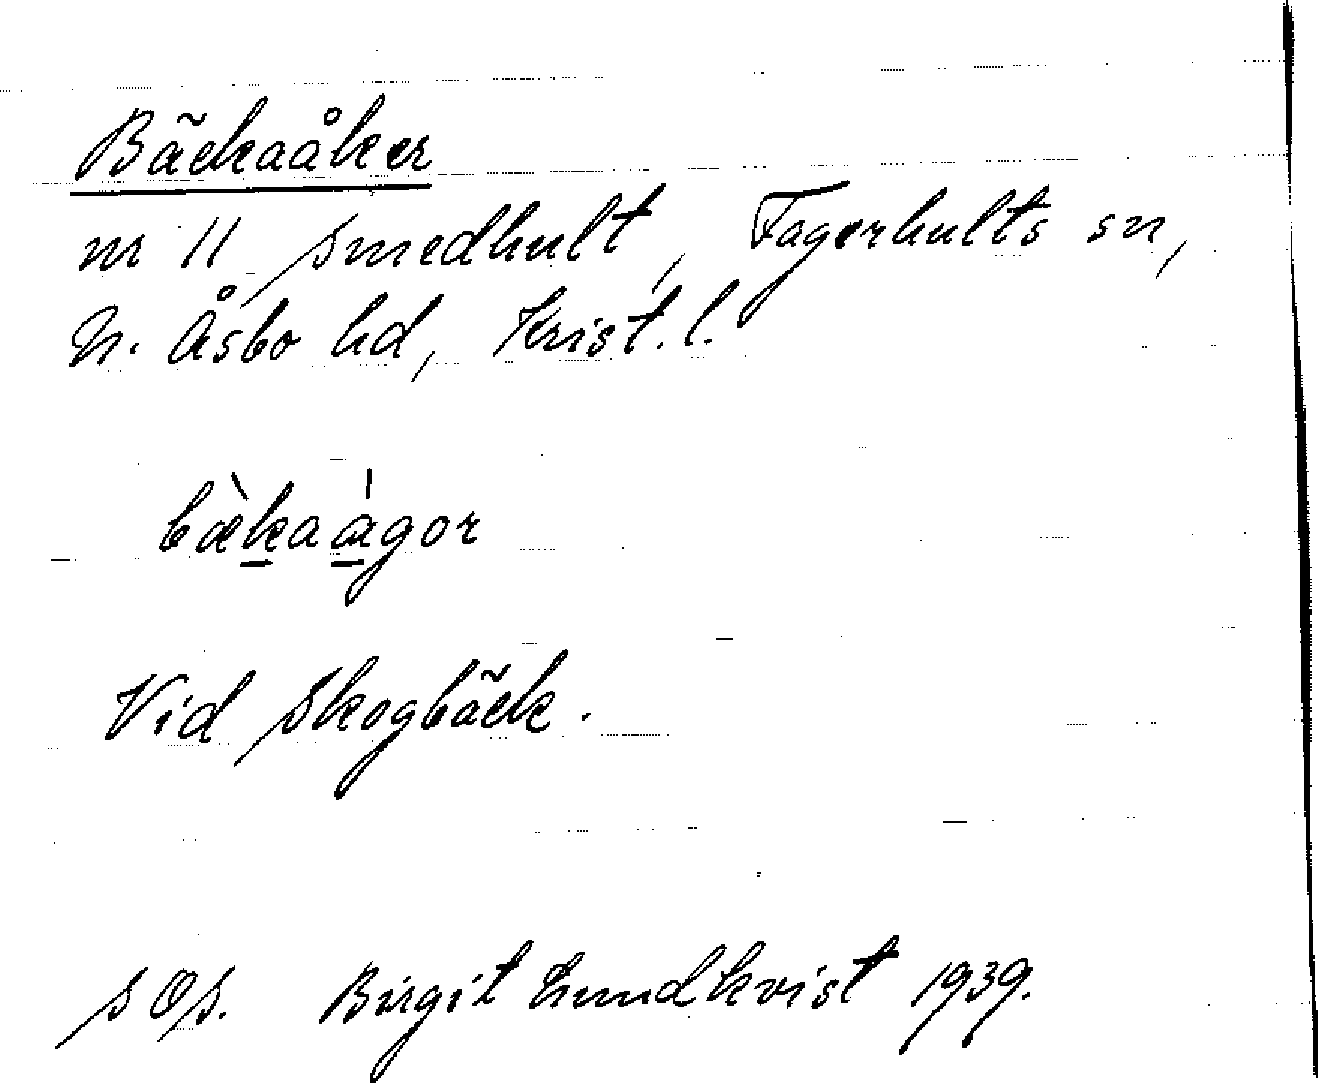 Bäckaåker
nr 11 Smedhult, Fagerhults sn,
N. Åsbo hd, Krist. l.
bæ̀kaàgor
Vid Skogbäck.
SOS. Birgit Lundkvist 1939.